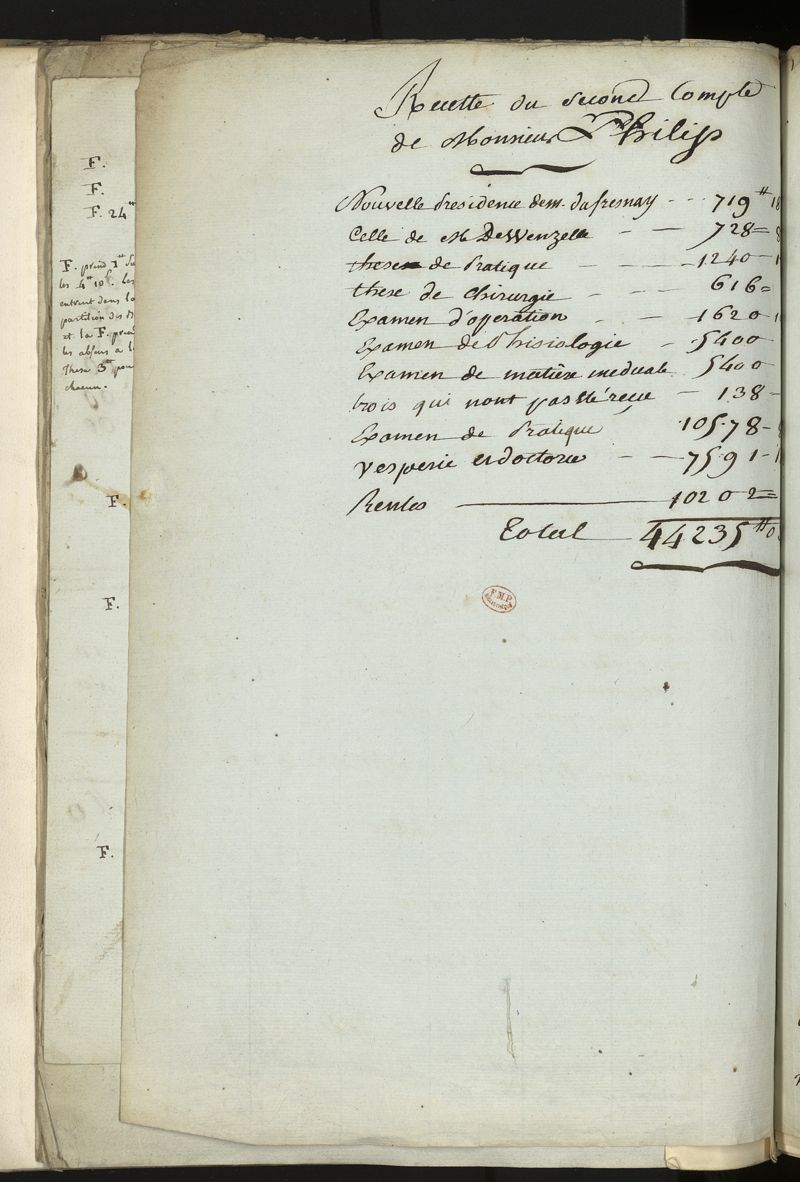 Recette du Second Compte
de Monsieur Philip
Nouvelle Présidence de m. dufresnay - - - 719 ₶ 18
Celle de M DeWenzelle - - 728 = 8
these de Pratique - - - - 1240 - 1
these de Chirurgie - - - 616 =
Examen d'operation - - 1620 - 1
Examen de Phisiologie - 5400
Examen de matiere medicale 5400
trois qui nont pas été reçu - 138 -
Examen de Pratique 10578 - 8
Vesperie et doctorie - - 7591 - 1
Rentes 10202 =
Total 44235 ₶ 0
F.
F.
F. 24 ₶
F. prend 1 ₶ Su
les 4 ₶ 10 s. les
entrent dans la
partition des
et la F. pren
les absens a l
These 3 ₶ pou
chacun.
F.
F.
F.
F.M.P.